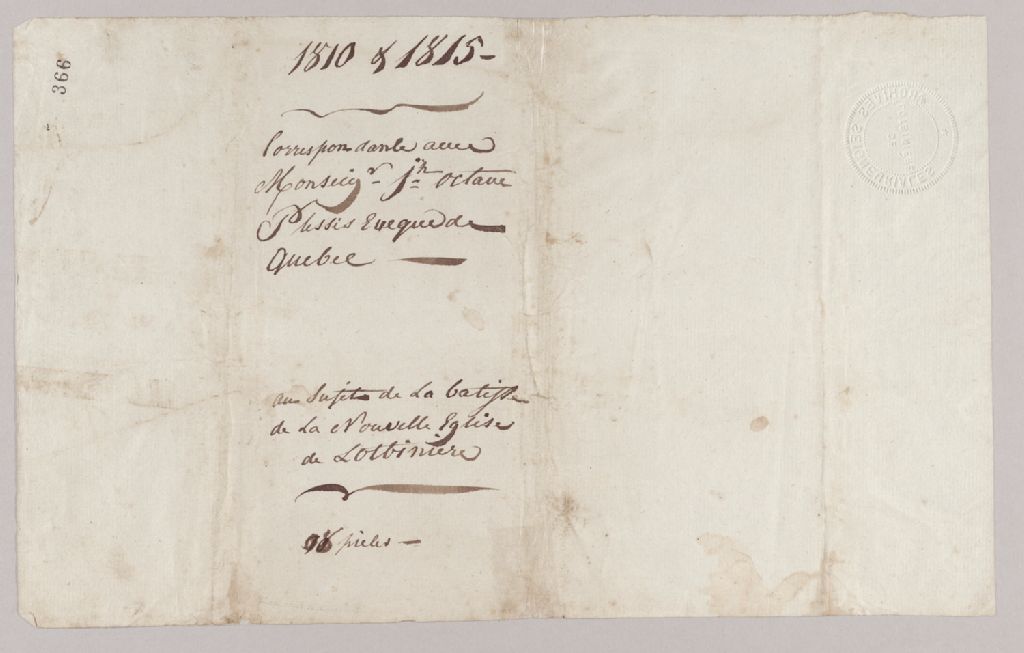 366
1810 & 1815-
Correspondance avec
Monseigr. Jh. octave
Plessis Eveque de
Quebec
au Sujet de La batisse
de La Nouvelle Eglise
de Lotbiniere
pieces -
ARCHIVES SEIGNEURIALES